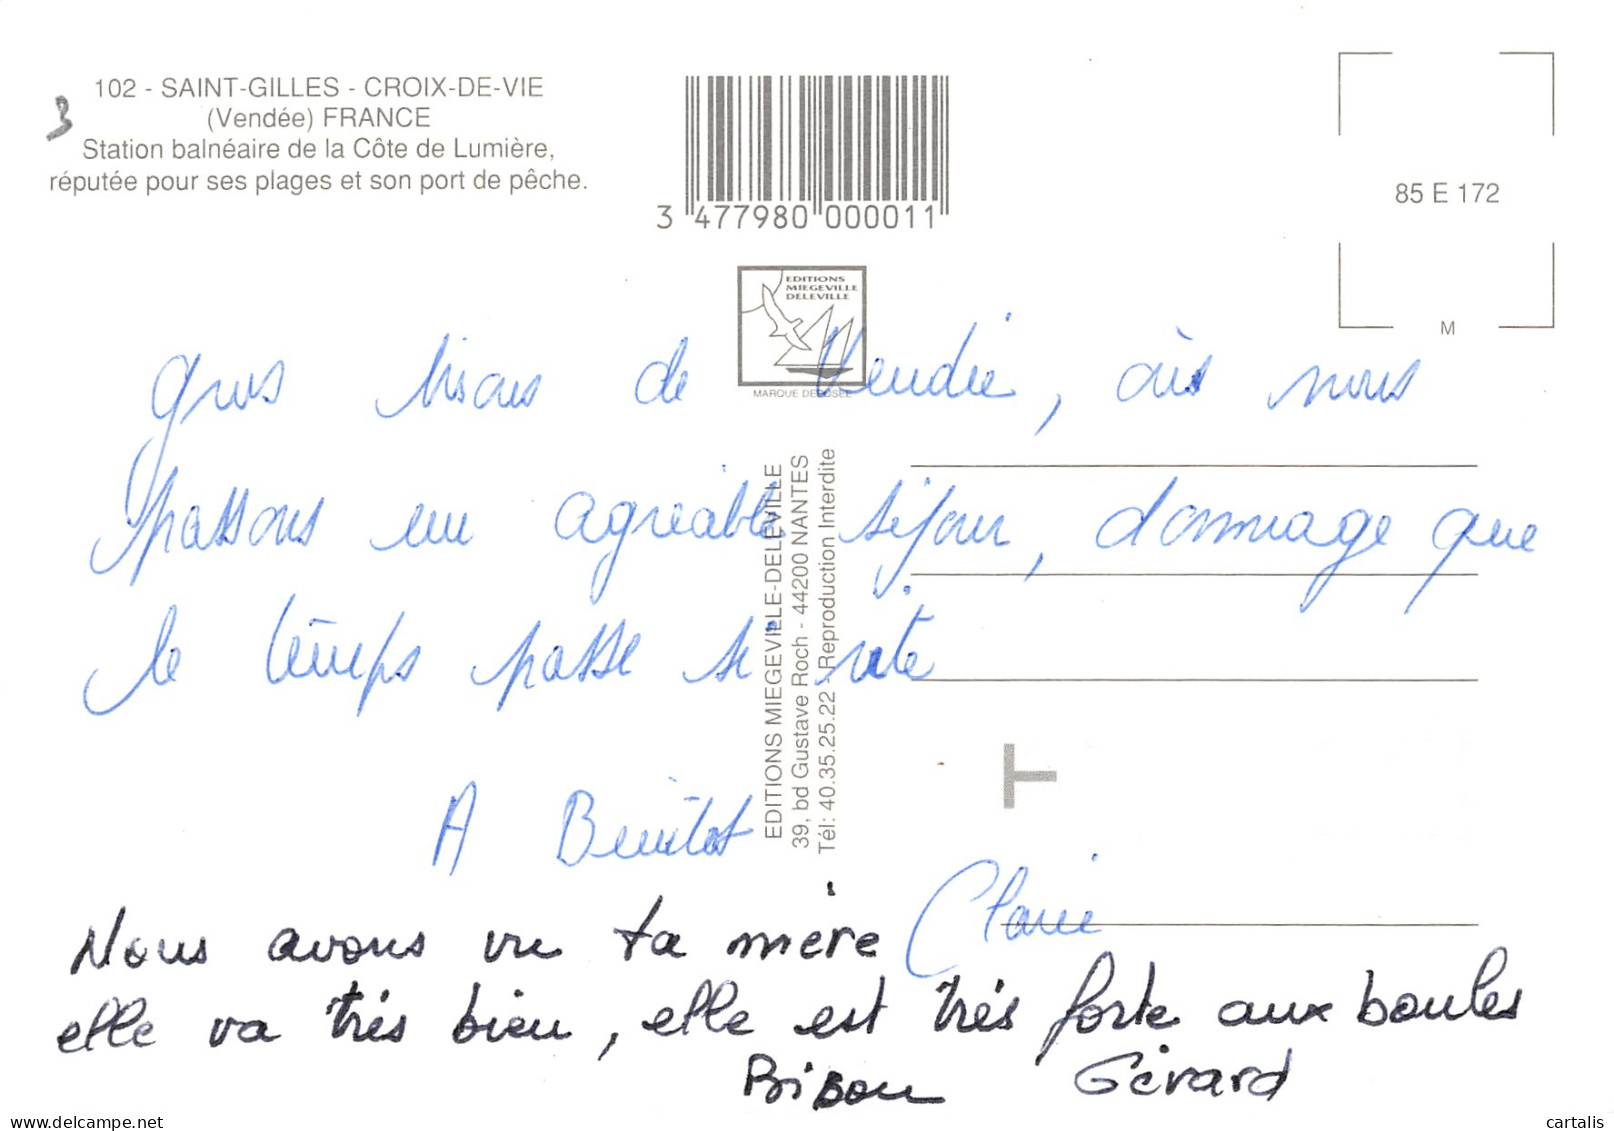 102 - SAINT-GILLES - CROIX-DE-VIE
(Vendée) FRANCE
Station balnéaire de la Côte de Lumière,
réputée pour ses plages et son port de pêche.
3
3 477980 000011
85 E 172
M
EDITIONS
MIEGEVILLE
DELEVILLE
MARQUE DEPOSEE
EDITIONS MIEGEVILLE-DELEVILLE
39, bd Gustave Roch - 44200 NANTES
Tél: 40.35.25.22 - Reproduction Interdite
gros bisous de Vendée, où nous
passons un agréable séjour, dommage que
le temps passe si vite
A Bientôt
Claire
Nous avons vu ta mère
elle va très bien, elle est très forte aux boules
Bisou Gérard
T
cartalis
www.delcampe.net